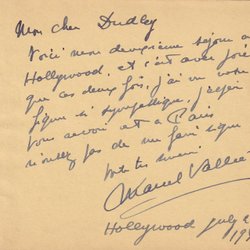 Mon cher Dudley
Voici mon deuxième séjour a
Hollywood, et c'est avec joie
que ces deux fois, j'ai vu votre
figure si sympathique, j'espère
vous revoir et a Paris
n'oubliez pas de me faire signe
votre ami
Marcel Vallée
Hollywood July
193